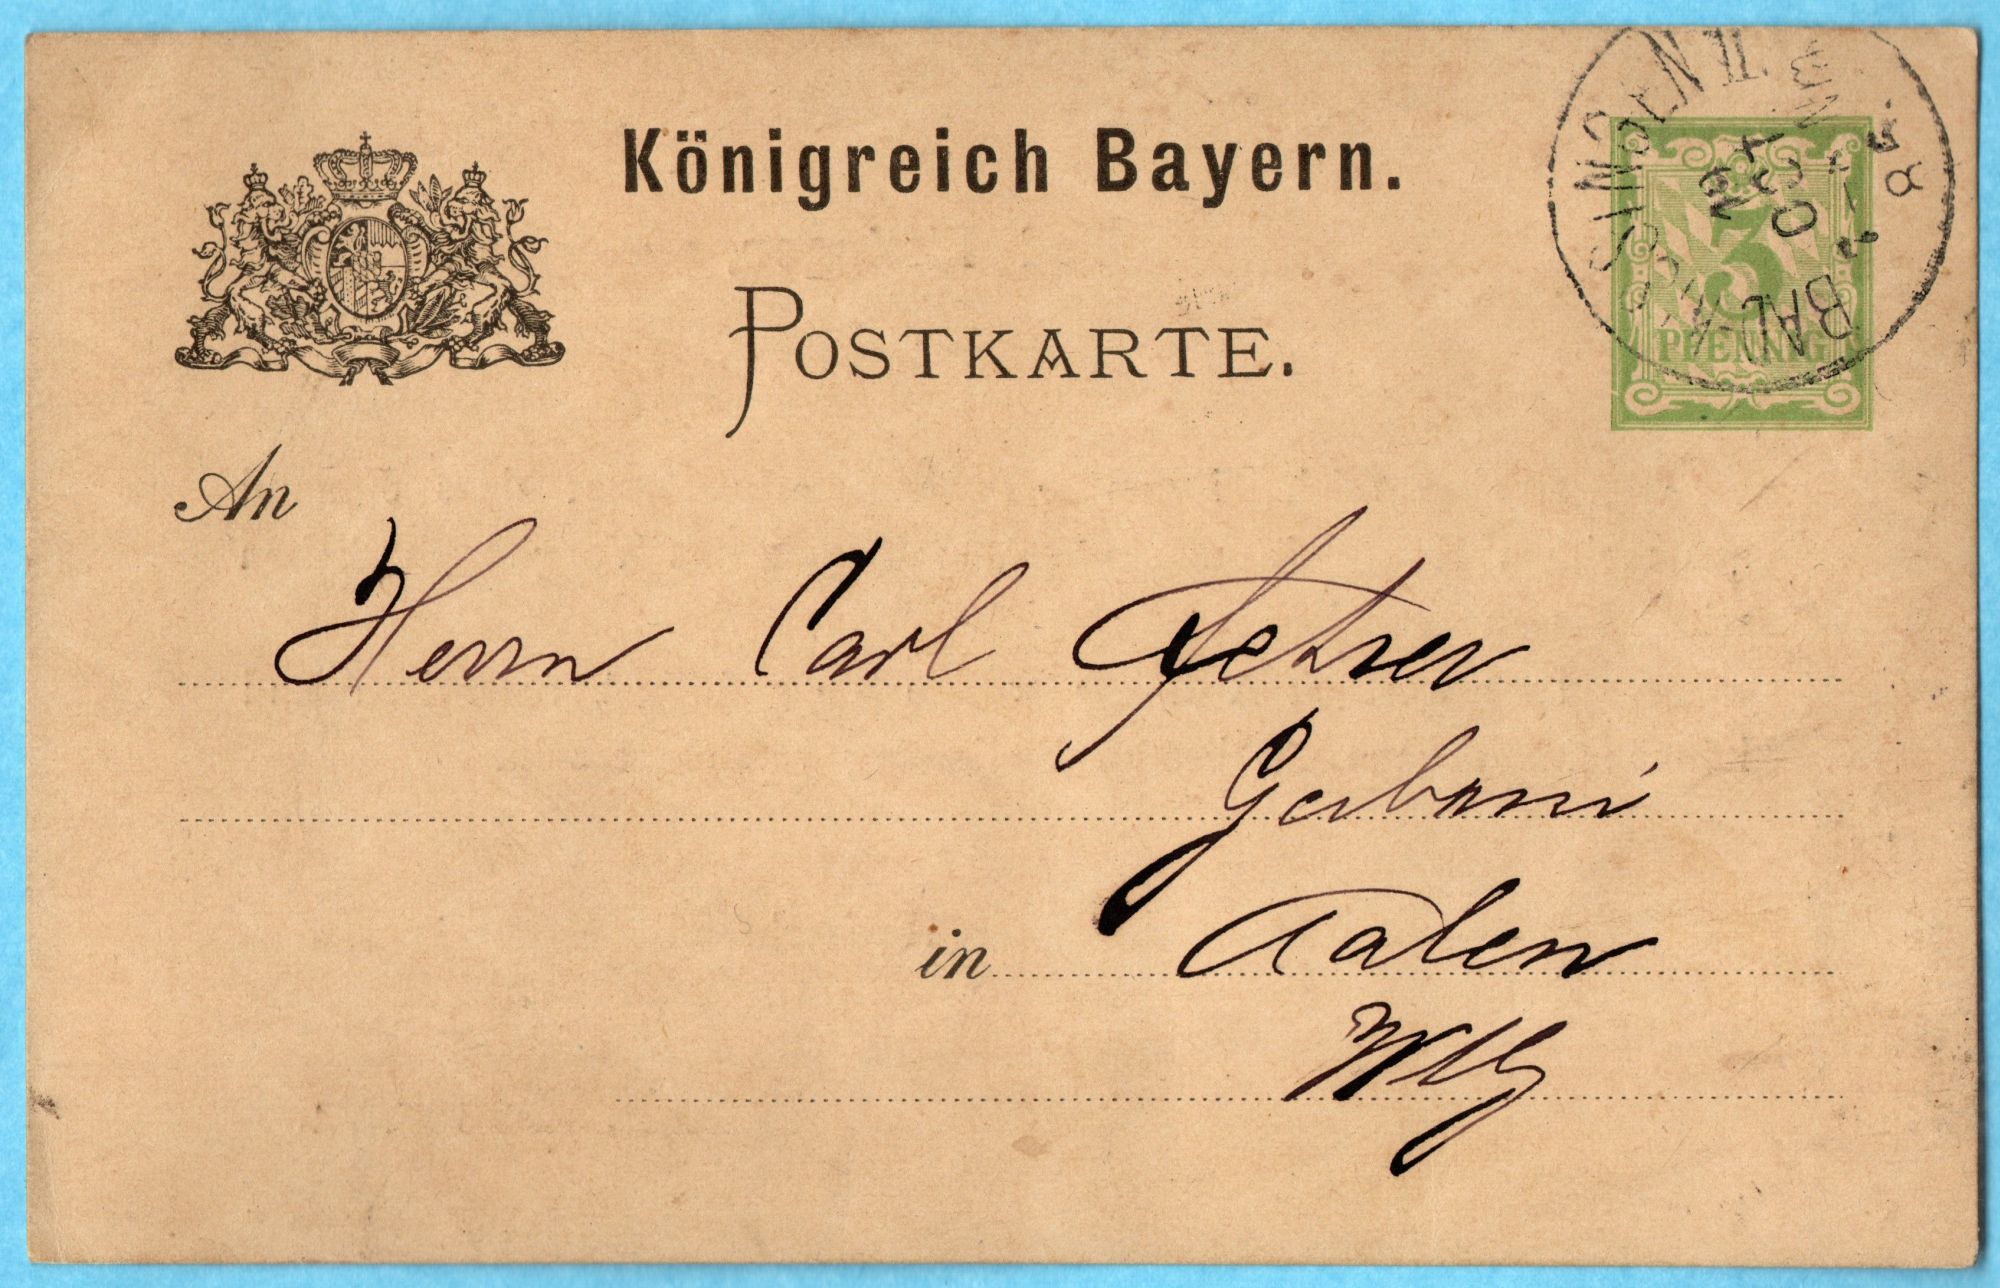 Königreich Bayern.
POSTKARTE.
3
PFENNIG
GIESSINGEN II
30 OKT
BAL
An
Herrn Carl Fetzer
Gerberei
in Aalen
Wttbg